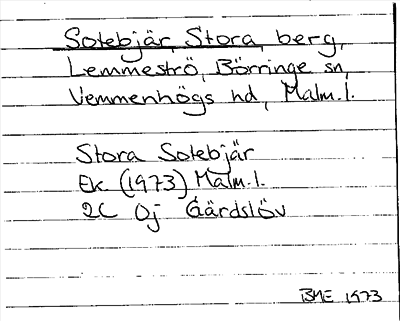 Solebjär, Stora, berg,
Lemmeströ, Börringe sn,
Vemmenhögs hd, Malm.l.
Stora Solebjär
Ek (1973) Malm.l.
2C 0j Gärdslöv
BME 1973